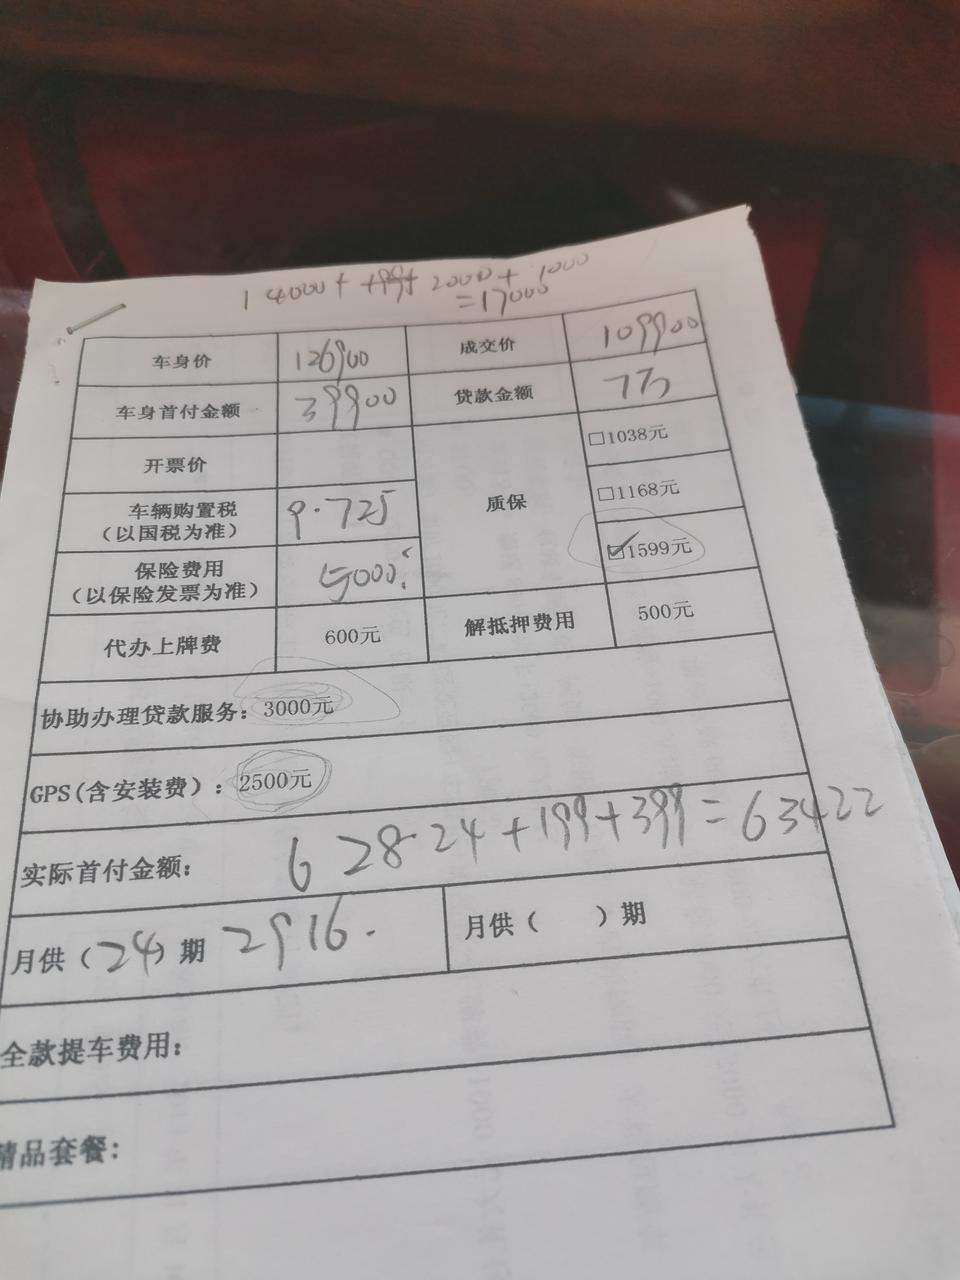 14000+ 2000+1000
=17000
车身价 126900 成交价 109900
车身首付金额 39900 贷款金额 7万
开票价
质保
□1038元
□1168元
☑1599元
车辆购置税
（以国税为准） 9.725
保险费用
（以保险发票为准） 5000
代办上牌费 600元 解抵押费用 500元
协助办理贷款服务：3000元
GPS(含安装费）：2500元
实际首付金额： 628.24+199+399=63422
月供（24）期 2916. 月供（ ）期
全款提车费用：
精品套餐：